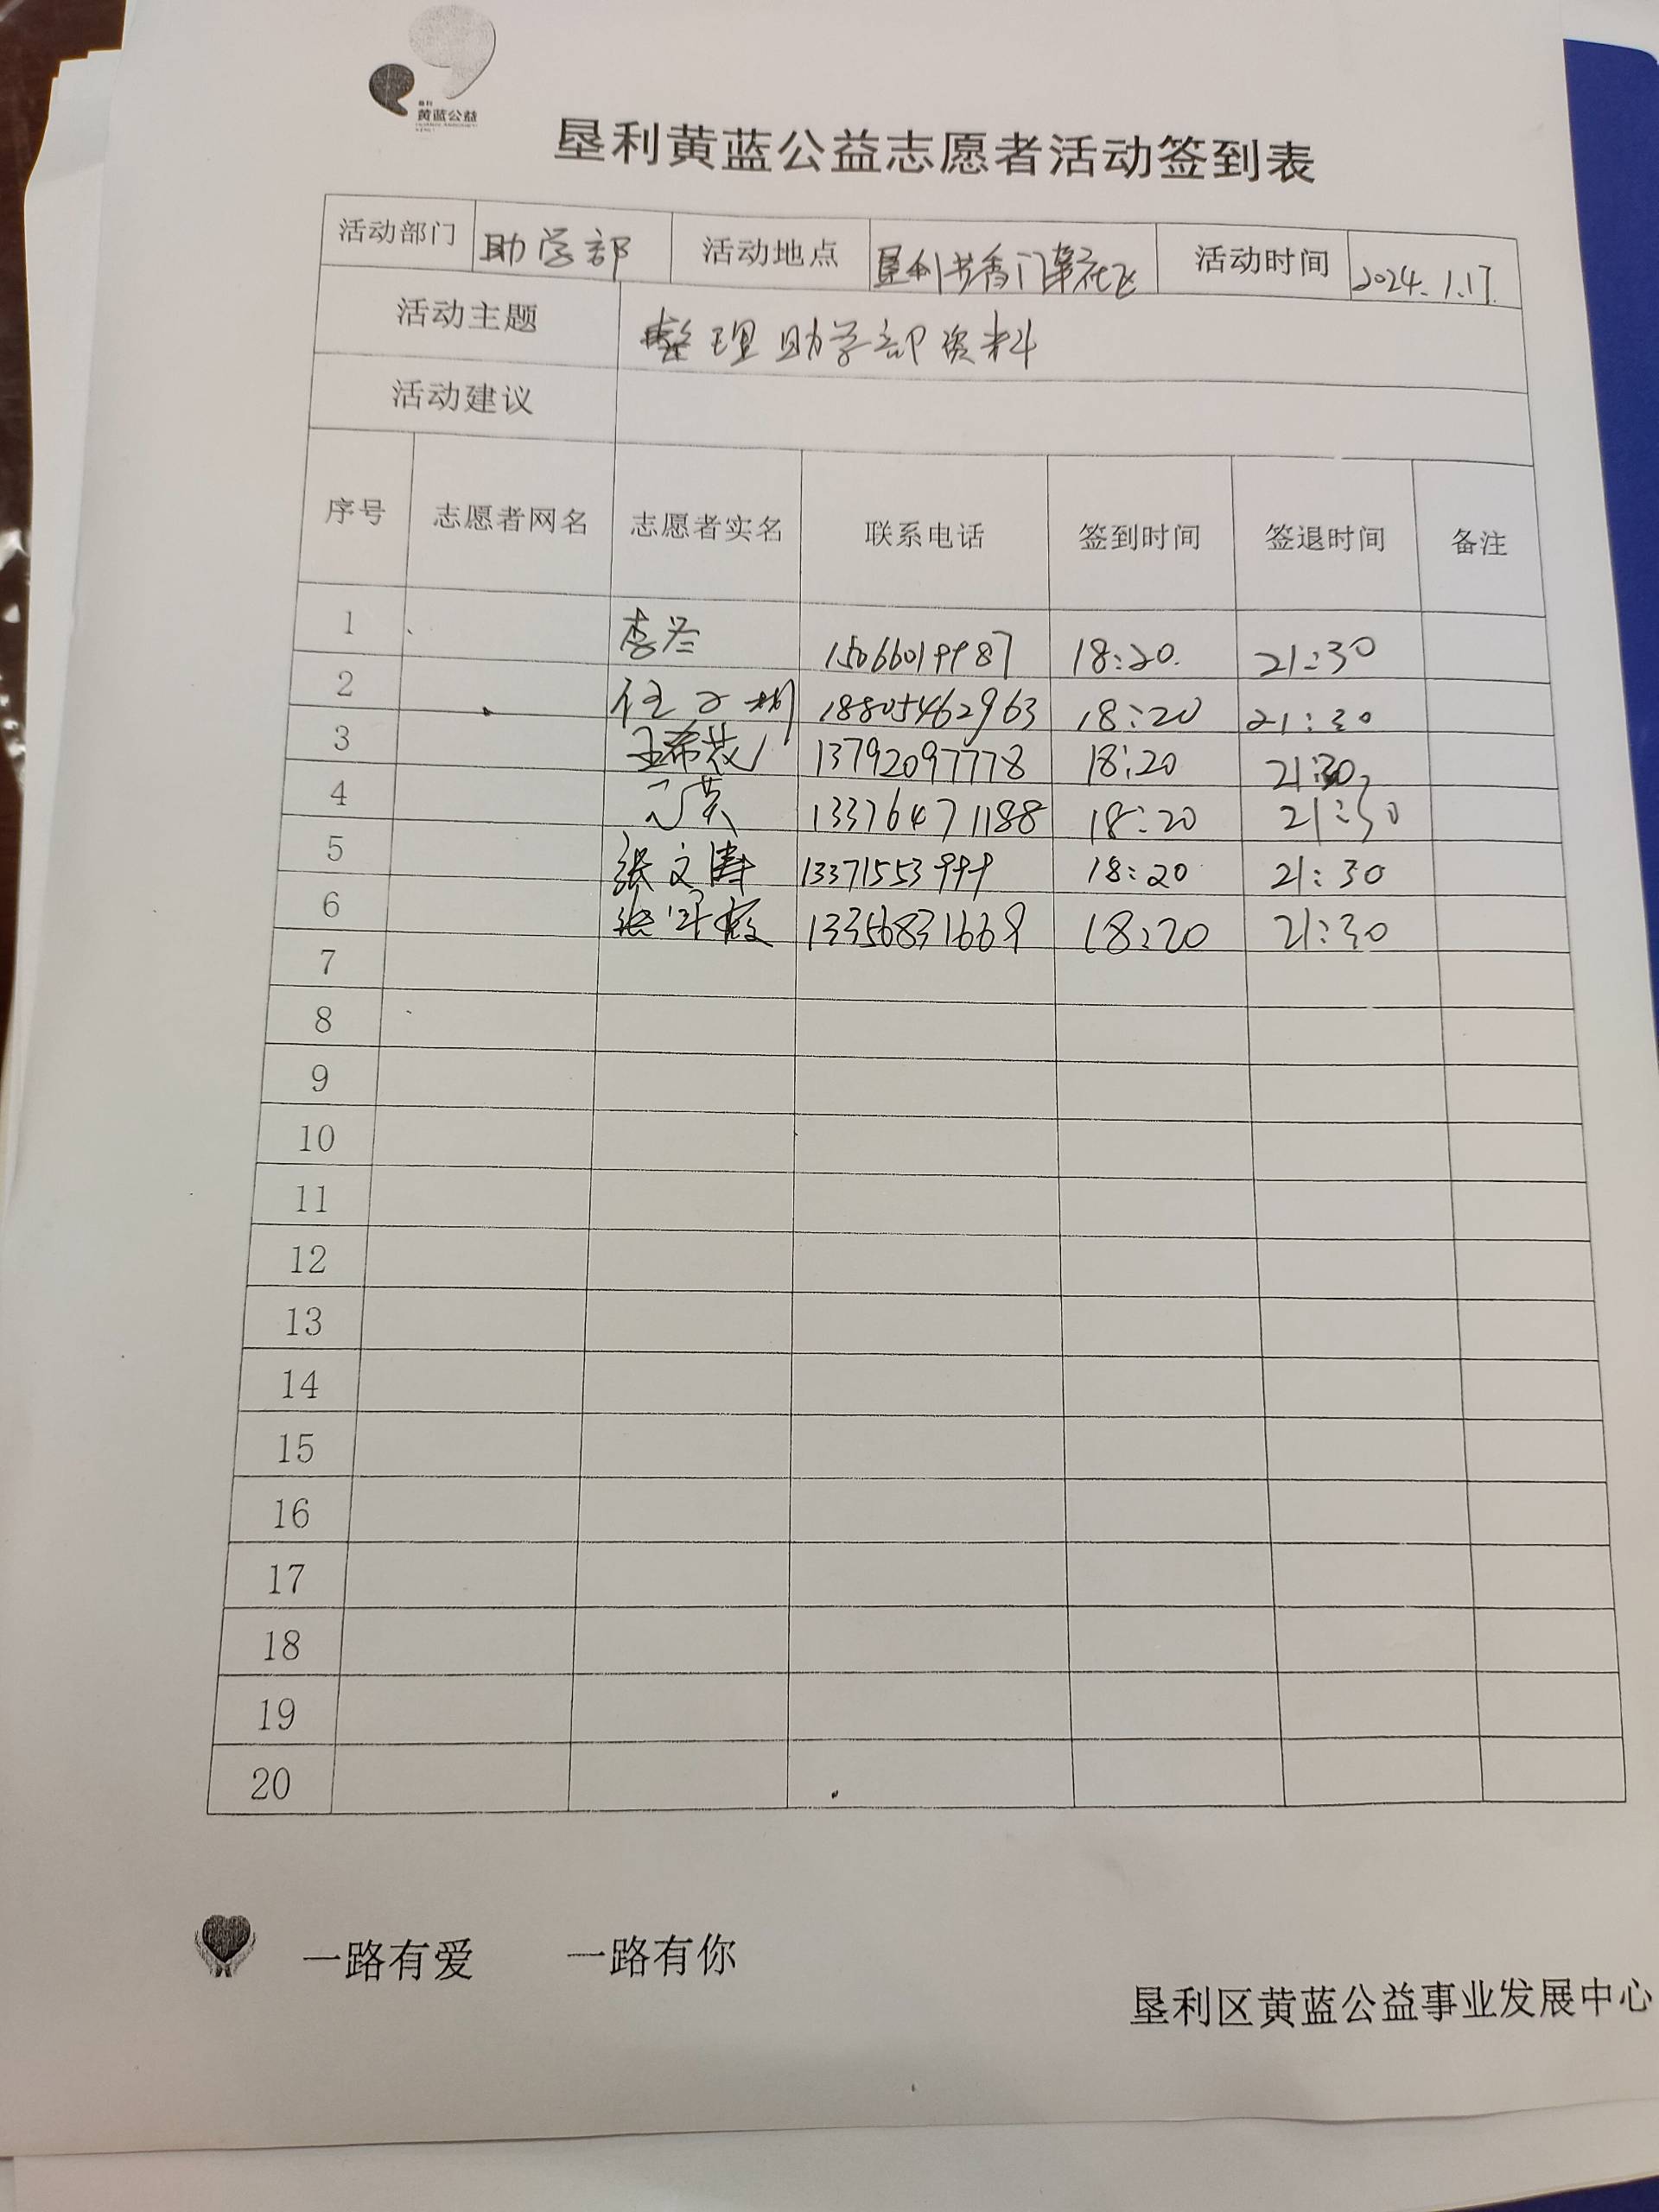 垦利
黄蓝公益
垦利黄蓝公益志愿者活动签到表
活动部门 助学部 活动地点 垦利书香门第社区 活动时间 2024.1.17.
活动主题 整理助学部资料
活动建议
序号 志愿者网名 志愿者实名 联系电话 签到时间 签退时间 备注
1 李兰 15066019987 18:20. 21:30
2 18805462963 18:20 21:30
3 王希茂 13792097778 18:20 21:30
4 13376471188 18:20 21:30
5 张文涛 13371553999 18:20 21:30
6 13356831669 18:20 21:30
7
8
9
10
11
12
13
14
15
16
17
18
19
20
一路有爱 一路有你
垦利区黄蓝公益事业发展中心